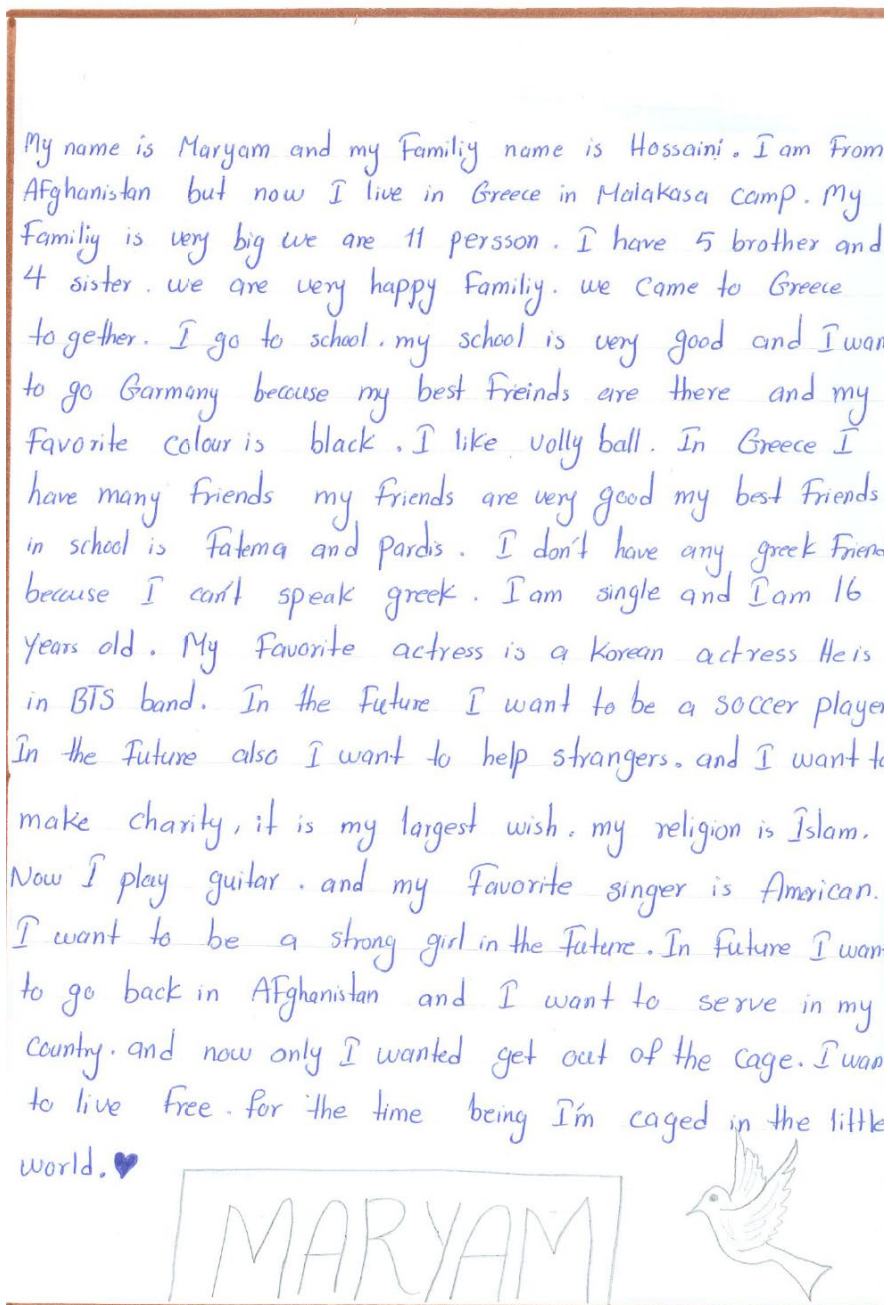 My name is Maryam and my Familiy name is Hossaini. I am From
Afghanistan but now I live in Greece in Malakasa camp. My
Familiy is very big we are 11 persson. I have 5 brother and
4 sister. we are very happy Familiy. we Came to Greece
to gether. I go to school. my school is very good and I wan
to go Garmany because my best Freinds are there and my
Favorite colour is black. I like volly ball. In Greece I
have many friends my friends are very good my best Friends
in school is Fatema and Pardis. I don't have any greek Friend
because I can't speak greek. I am single and I am 16
years old. My Favorite actress is a Korean actress He is
in BTS band. In the Future I want to be a soccer player
In the Future also I want to help strangers. and I want to
make charity, it is my largest wish. my religion is Islam.
Now I play guitar. and my Favorite singer is American.
I want to be a strong girl in the Future. In Future I wan
to go back in AFghanistan and I want to serve in my
Country. and now only I wanted get out of the cage. I wan
to live Free. for the time being I'm caged in the little
world.
MARYAM